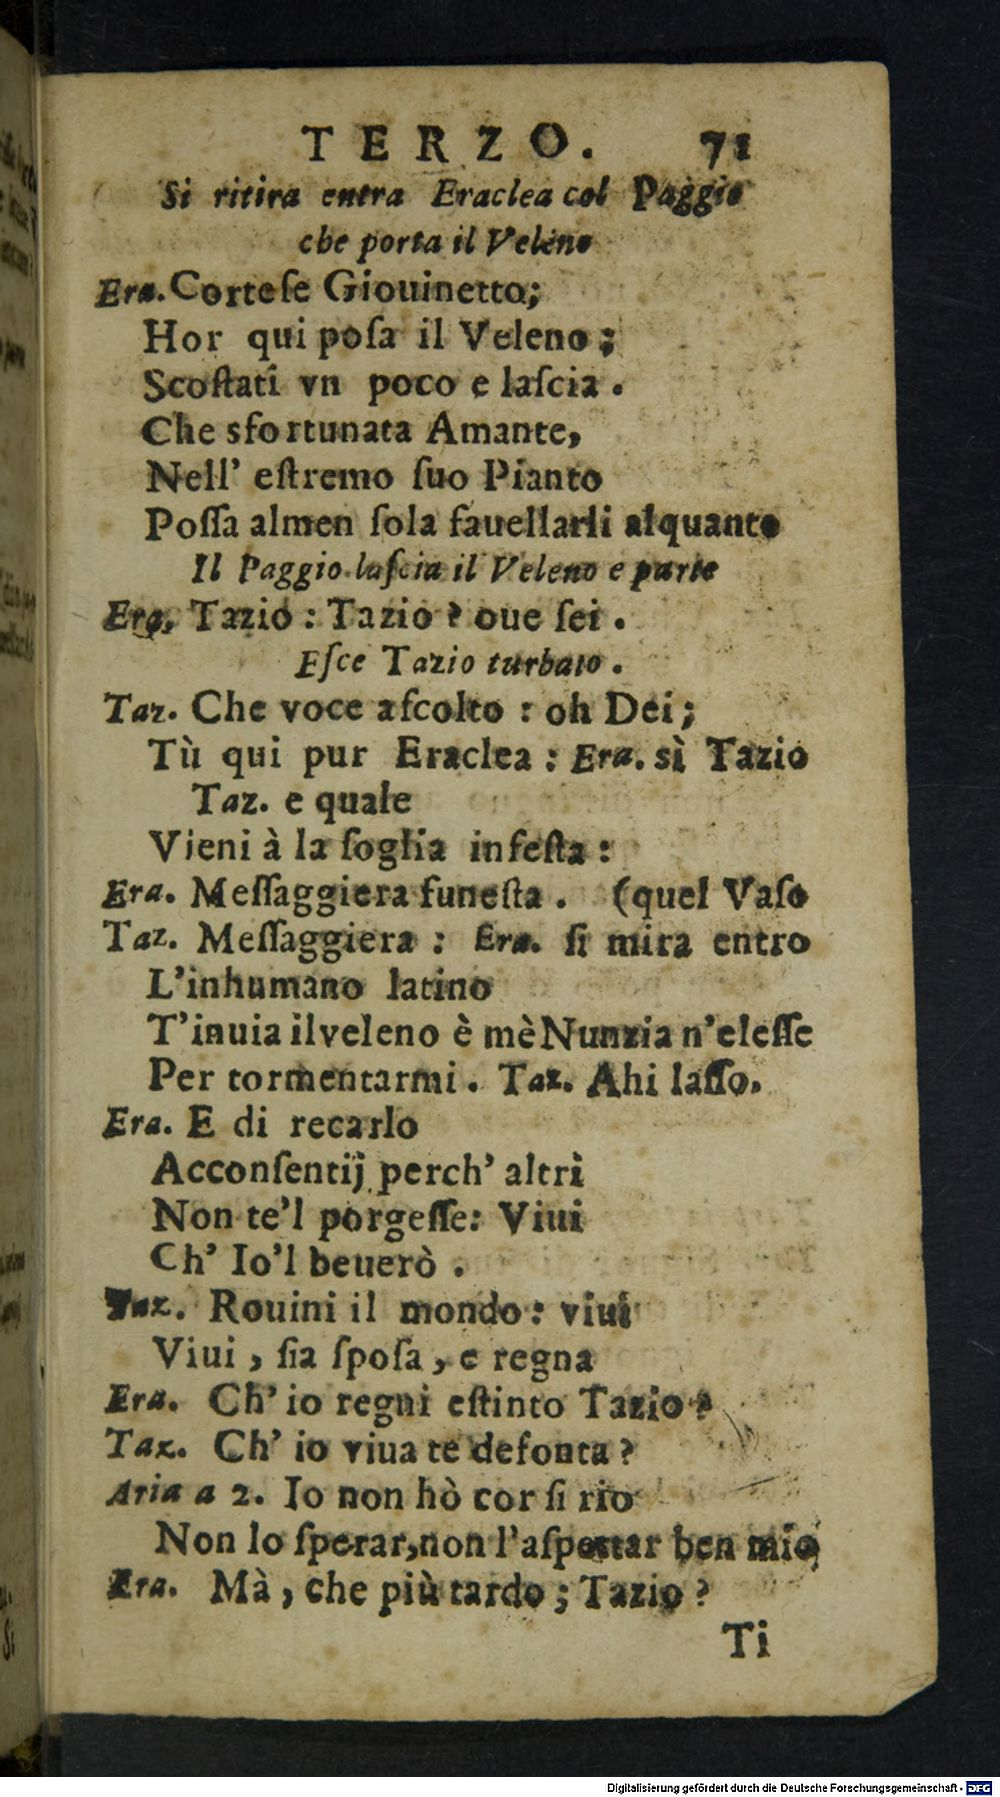 TERZO. 71
Si ritira entra Eraclea col Paggio
che porta il Veleno
Era. Corteſe Giouinetto;
Hor qui poſa il Veleno;
Scoſtati vn poco e laſcia.
Che sfortunata Amante,
Nell' eſtremo ſuo Pianto
Poſſa almen ſola fauellarli alquanto
Il Paggio laſcia il Veleno e parte
Era, Tazio: Tazio? oue ſei.
Eſce Tazio turbato.
Taz. Che voce aſcolto: oh Dei;
Tù qui pur Eraclea: Era. sì Tazio
Taz. e quale
Vieni à la ſoglia infeſta:
Era. Meſſaggiera funeſta. (quel Vaſo
Taz. Meſſaggiera: Era. ſi mira entro
L'inhumano latino
T'inuia ilveleno è mè Nunzia n'eleſſe
Per tormentarmi. Taz. Ahi laſſo.
Era. E di recarlo
Acconſentij perch' altri
Non te'l porgeſſe: Viui
Ch' Io'l beuerò.
Taz. Rouini il mondo: viui
Viui, ſia ſpoſa, e regna
Era. Ch' io regni eſtinto Tazio?
Taz. Ch' io viua te defonta?
Aria a 2. Io non hò cor ſi rio
Non lo ſperar, non l'aſpettar ben mio
Era. Mà, che più tardo; Tazio?
Ti
Digitalisierung gefördert durch die Deutsche Forschungsgemeinschaft - DFG